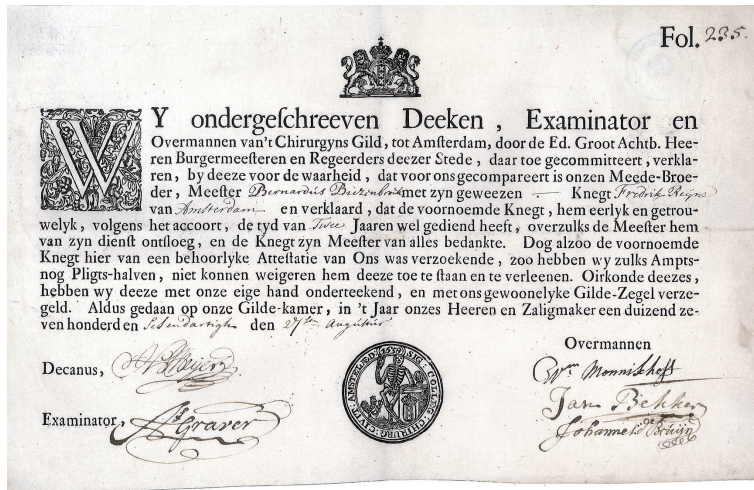 Fol. 235.
WY ondergeſchreeven Deeken, Examinator en
Overmannen van't Chirurgyns Gild, tot Amsterdam, door de Ed. Groot Achtb. Hee-
ren Burgermeesteren en Regeerders deezer Stede, daar toe gecommitteert, verkla-
ren, by deeze voor de waarheid, dat voor ons gecompareert is onzen Meede-Broe-
der, Meester Bernardus met zyn geweezen — Knegt Fredrik Reijne
van Amsterdam en verklaard, dat de voornoemde Knegt, hem eerlyk en getrou-
welyk, volgens het accoort, de tyd van Twee Jaaren wel gediend heeft, overzulks de Meester hem
van zyn dienst ontſloeg, en de Knegt zyn Meester van alles bedankte. Dog alzoo de voornoemde
Knegt hier van een behoorlyke Attestatie van Ons was verzoekende, zoo hebben wy zulks Ampts-
nog Pligts-halven, niet konnen weigeren hem deeze toe te ſtaan en te verleenen. Oirkonde deezes,
hebben wy deeze met onze eige hand onderteekend, en met ons gewoonelyke Gilde-Zegel verze-
geld. Aldus gedaan op onze Gilde-kamer, in 't Jaar onzes Heeren en Zaligmaker een duizend ze-
ven honderd en den 27e Augustus
Overmannen
Decanus,
Wm Monnikhoff
SIG: COLLEG: CHIRURG: CIVIT: AMSTELED:
Jan Bekker
Examinator, Graver
Johannes de Bruijn